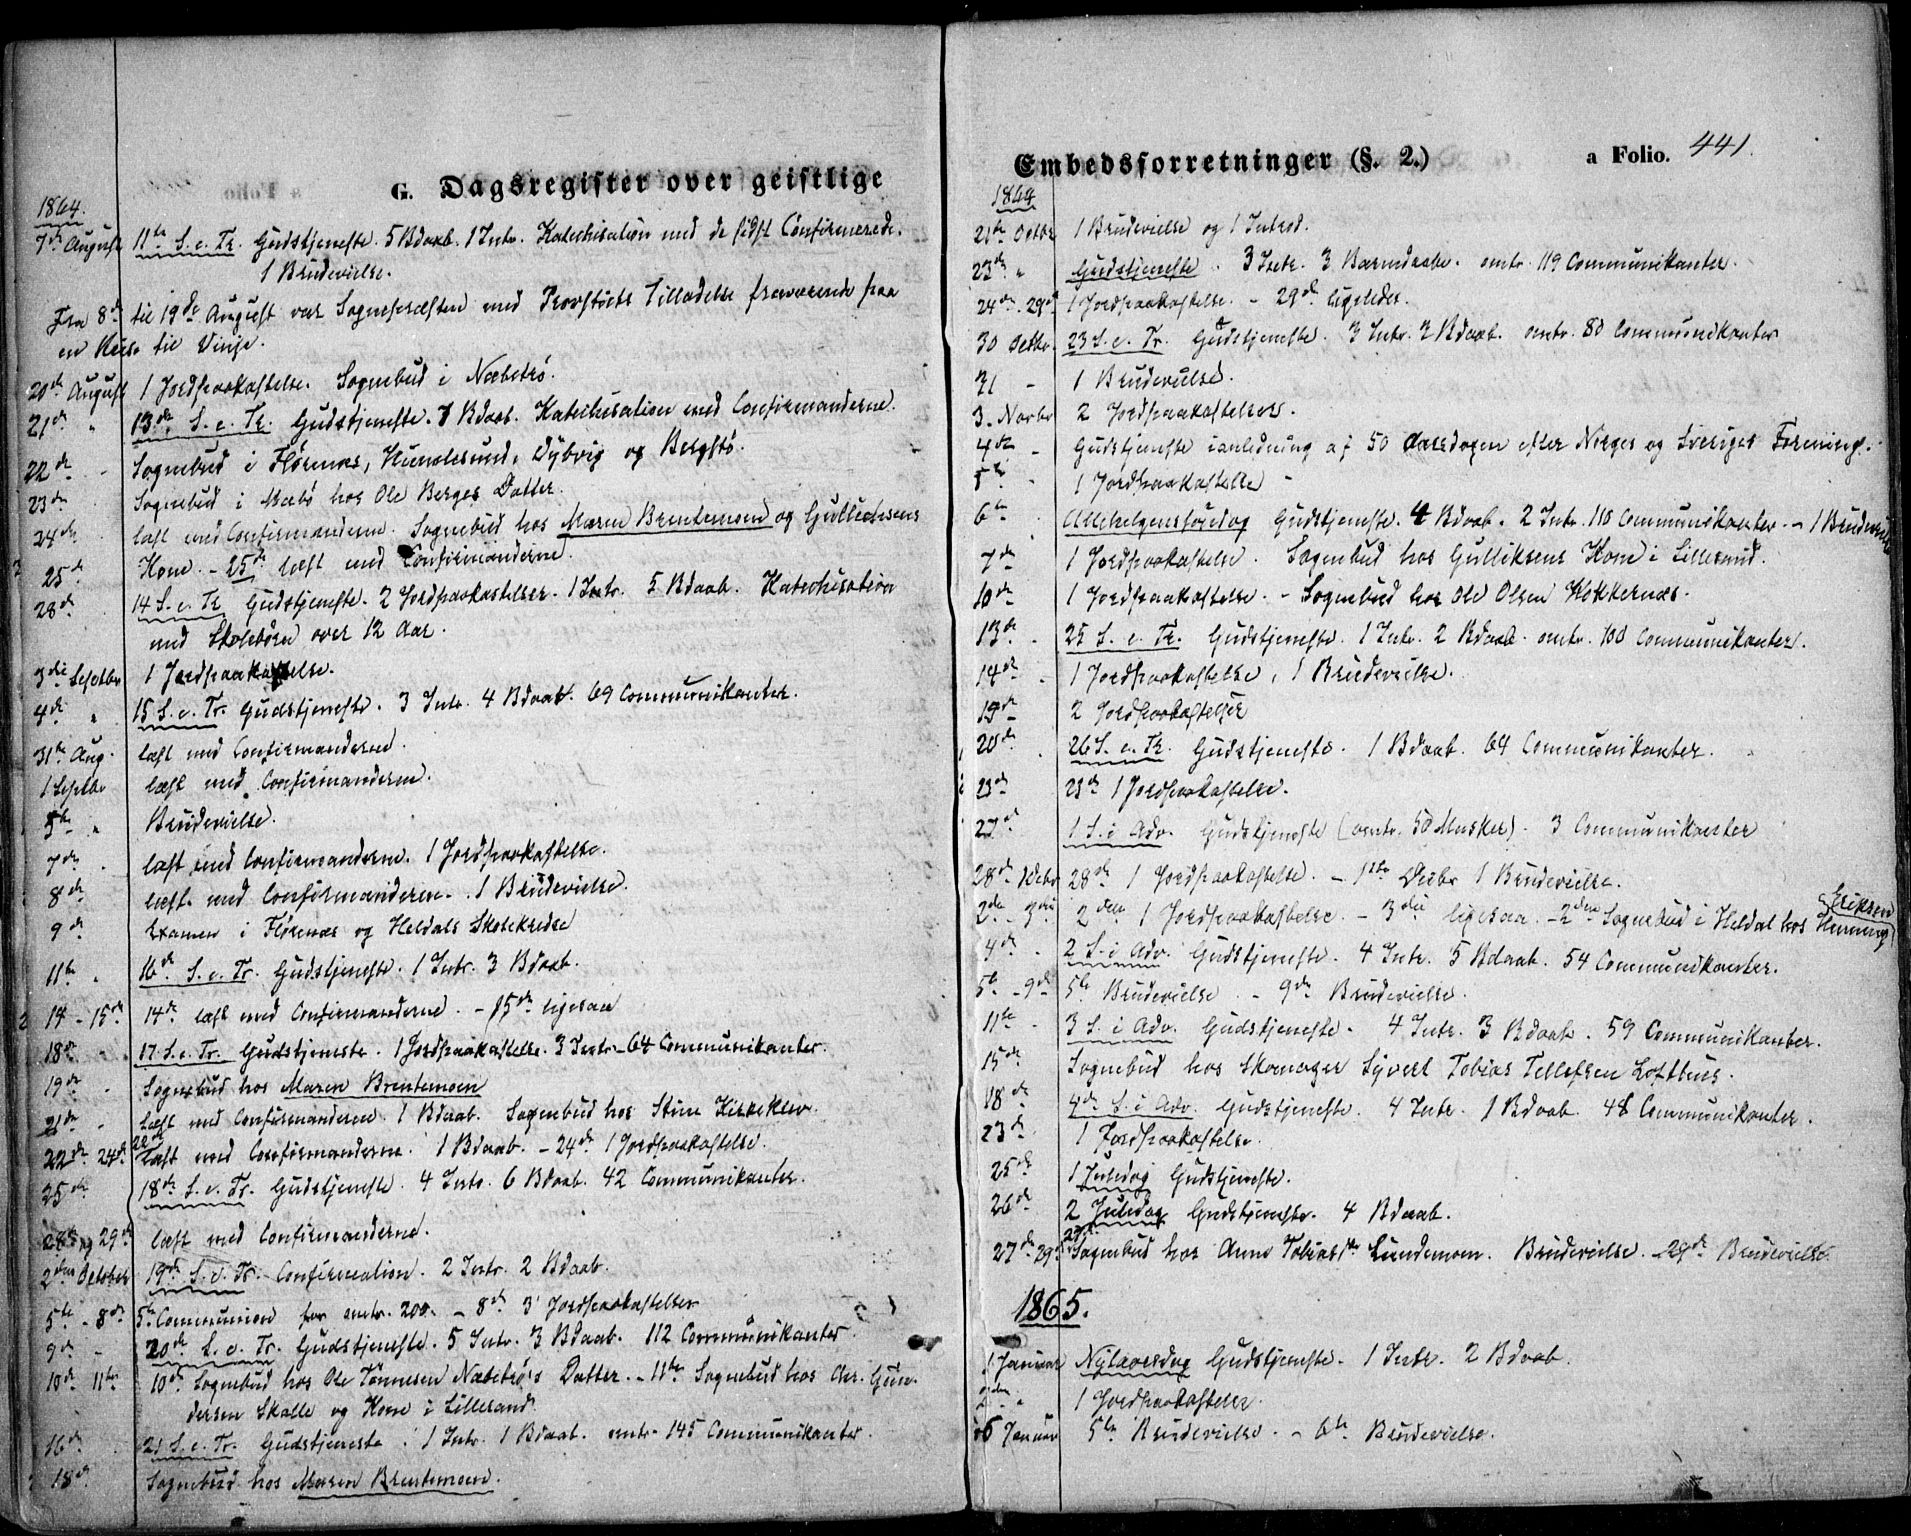 G. Dagsregister over geistlige
1864.
7de August 11te S. e. Tr. Gudstjeneste. 5 Bdaab. 1 Intr. Katechisation med de sidst Confirmerede.
1 Brudevielse.
Fra 8de til 19de August var Sognepræsten med Provstiets Tilladelse fraværende paa
en Reise til Vinje.
20de August 1 Jordpaakastelse. Sognebud i Næbetrø.
21de " 13de S. e. Tr. Gudstjeneste. 7 Bdaab. Katechisation med Confirmanderne.
22de - Sognebud i Florenæs, Humlesund, Dybvig og Bergstø.
23de Sognebud i Mæbø hos Ole Berges Datter.
24de læst med Confirmanderne. Sognebud hos Maren Brentemoen og Gullichsens
25de Kone. - 25de læst med Confirmanderne.
28de 14 S. e. Tr. Gudstjeneste. 2 Jordpaakastelser. 1 Intr. 5 Bdaab. Katechisation
med Skolebørn over 12 Aar.
3die Septbr 1 Jordpaakastelse.
4de " 15 S. e. Tr. Gudstjeneste. 3 Intr. 4 Bdaab. 69 Communikanter.
31te Aug. læst med Confirmanderne.
1 Septbr læst med Confirmanderne.
5te " Brudevielse.
7de . læst med Confirmanderne. 1 Jordpaakastelse.
8de læst med Confirmanderne. 1 Brudevielse.
9de Examen i Florenæs og Heldals Skolekredse
11te " 16de S. e. Tr. Gudstjeneste. 1 Intr. 3 Bdaab.
14 - 15de 14de læst med Confirmanderne. - 15de ligesaa
18de 17. S. e. Tr. Gudstjeneste. 1 Jordpaakastelse. 3 Intr. - 64 Communikanter.
19de . Sognebud hos Maren Brentemoen
21de - Læst med Confirmanderne. 1 Bdaab. Sognebud hos Stine Kirkeklev.
22de 24de 22de læst med Confirmanderne. 1 Bdaab. - 24de 1 Jordpaakastelse.
25de 18de S. e. Tr. Gudstjeneste. 4 Intr. 6 Bdaab. 42 Communikanter.
28de og 29de læst med Confirmanderne.
2den October 19de S. e. Tr. Confirmation. 2 Intr. 2 Bdaab.
5te - 8de 5te Communion for omtr. 200. - 8de 3 Jordpaakastelser
9de - 20de S. e. Tr. Gudstjeneste. 5 Intr. 3 Bdaab. 112 Communikanter.
10de 11te 10de Sognebud hos Ole Tønnesen Næbetrø's Datter. - 11te Sognebud hos Chr. Gun-
dersen Skalle og Kone i Lillesand.
16de 21 S. e. Tr. Gudstjeneste. 1 Intr. 1 Bdaab. omtr. 145 Communikanter.
18de Sognebud hos Maren Brentemoen.
Embedsforretninger (§. 2.) a Folio. 441.
1864
21de Octbr 1 Brudevielse og 1 Introd.
23de " Gudstjeneste. 3 Intr. 3 Barnedaabe. omtr. 119 Communikanter.
24de. 29de 1 Jordpaakastelse. - 29de ligeledes.
30 Octbr. 23 S. e. Tr. Gudstjeneste. 3 Intr. 3 Bdaab. omtr. 80 Communikanter
31 - 1 Brudevielse.
3. Novbr 2 Jordpaakastelser.
4de - Gudstjeneste i anledning af 50 Aarsdagen efter Norges og Sveriges Forening.
5te 1 Jordpaakastelse -
6te . Allehelgensføredag Gudstjeneste. 4 Bdaab. 2 Intr. 110 Communikanter. - 1 Brudevielse
7de 1 Jordpaakastelse. Sognebud hos Gulliksens Kone i Lillesand.
10de 1 Jordpaakastelse. - Sognebud hos Ole Olsen Kokkernæs.
13de . 25 S. e. Tr. Gudstjeneste. 1 Intr. 2 Bdaab. omtr. 100 Communikanter.
14de . 1 Jordpaakastelse, 1 Brudevielse.
19de 2 Jordpaakastelser
20de . 26 S. e. Tr. Gudstjeneste. 1 Bdaab. 64 Communikanter.
23de 23de 1 Jordpaakastelse.
27de 1 S. i Adv. Gudstjeneste (omtr. 50 Mnsker). 3 Communikanter
28de 1 Debr 28de 1 Jordpaakastelse. - 1ste Decbr 1 Brudevielse.
2den - 3die 2den 1 Jordpaakastelse. - 3die ligesaa - 2den Sognebud i Heldal hos Henning Eriksen
4de . 2 S. i Adv. Gudstjeneste. 4 Intr. 5 Bdaab. 54 Communikanter.
5te - 9de 5te Brudevielse - 9de Brudevielse.
11te . 3 S. i Adv. Gudstjeneste. 4 Intr. 3 Bdaab. 59 Communikanter.
15de Sognebud hos Skomager Syvert Tobias Tellefsen Lofthuus.
18de 4de S. i Adv. Gudstjeneste. 4 Intr. 1 Bdaab. 48 Communikanter.
23de 1 Jordpaakastelse.
25de 1 Juledag Gudstjeneste.
26de 2 Juledag Gudstjeneste. 4 Bdaab.
27de 29de 27de Sognebud hos Anne Tobiasdtr Lundemoen. Brudevielse. 29de Brudevielse.
1865.
1 Januar Nytaarsdag Gudstjeneste. 1 Intr. 2 Bdaab.
2den " 1 Jordpaakastelse.
5 6 Januar 5te Brudevielse. - 6te Brudevielse.